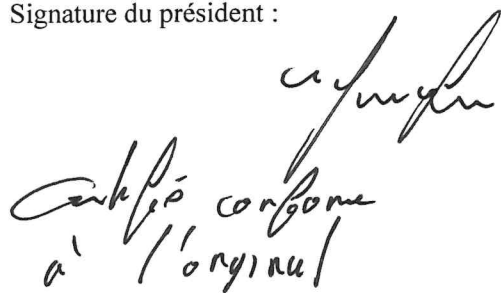 Signature du président :
Certifié conforme
à l'original